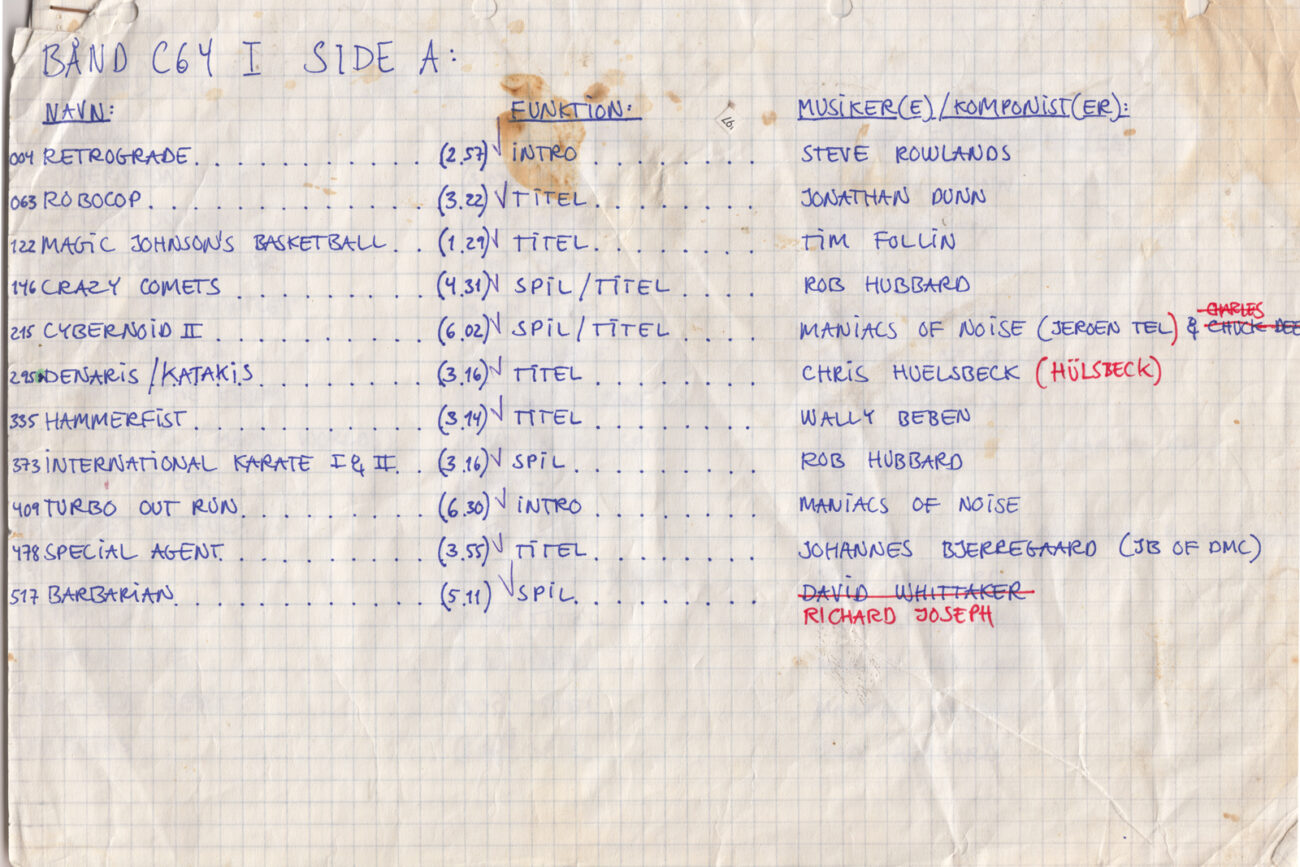 BÅND C64 I SIDE A:
NAVN: FUNKTION: MUSIKER(E)/KOMPONIST(ER):
004 RETROGRADE. . . . . . . . . . . (2.57) √ INTRO . . . . . . . STEVE ROWLANDS
063 ROBOCOP . . . . . . . . . . . . . (3.22) √ TITEL. . . . . . . . JONATHAN DUNN
122 MAGIC JOHNSON'S BASKETBALL. . (1.29) √ TITEL. . . . . . . . TIM FOLLIN
146 CRAZY COMETS . . . . . . . . . (4.31) √ SPIL/TITEL . . . . ROB HUBBARD
215 CYBERNOID II . . . . . . . . . . (6.02) √ SPIL/TITEL . . . . MANIACS OF NOISE (JEROEN TEL) & CHARLES CHUCK DEE
295 DENARIS/KATAKIS. . . . . . . . (3.16) √ TITEL . . . . . . . CHRIS HUELSBECK (HÜLSBECK)
335 HAMMERFIST. . . . . . . . . . . (3.14) √ TITEL . . . . . . . WALLY BEBEN
373 INTERNATIONAL KARATE I & II. . (3.16) √ SPIL. . . . . . . . ROB HUBBARD
409 TURBO OUT RUN. . . . . . . . . (6.30) √ INTRO . . . . . . . MANIACS OF NOISE
478 SPECIAL AGENT. . . . . . . . . (3.55) √ TITEL. . . . . . . . JOHANNES BJERREGAARD (JB OF DMC)
517 BARBARIAN. . . . . . . . . . . (5.11) √ SPIL. . . . . . . . DAVID WHITTAKER
RICHARD JOSEPH